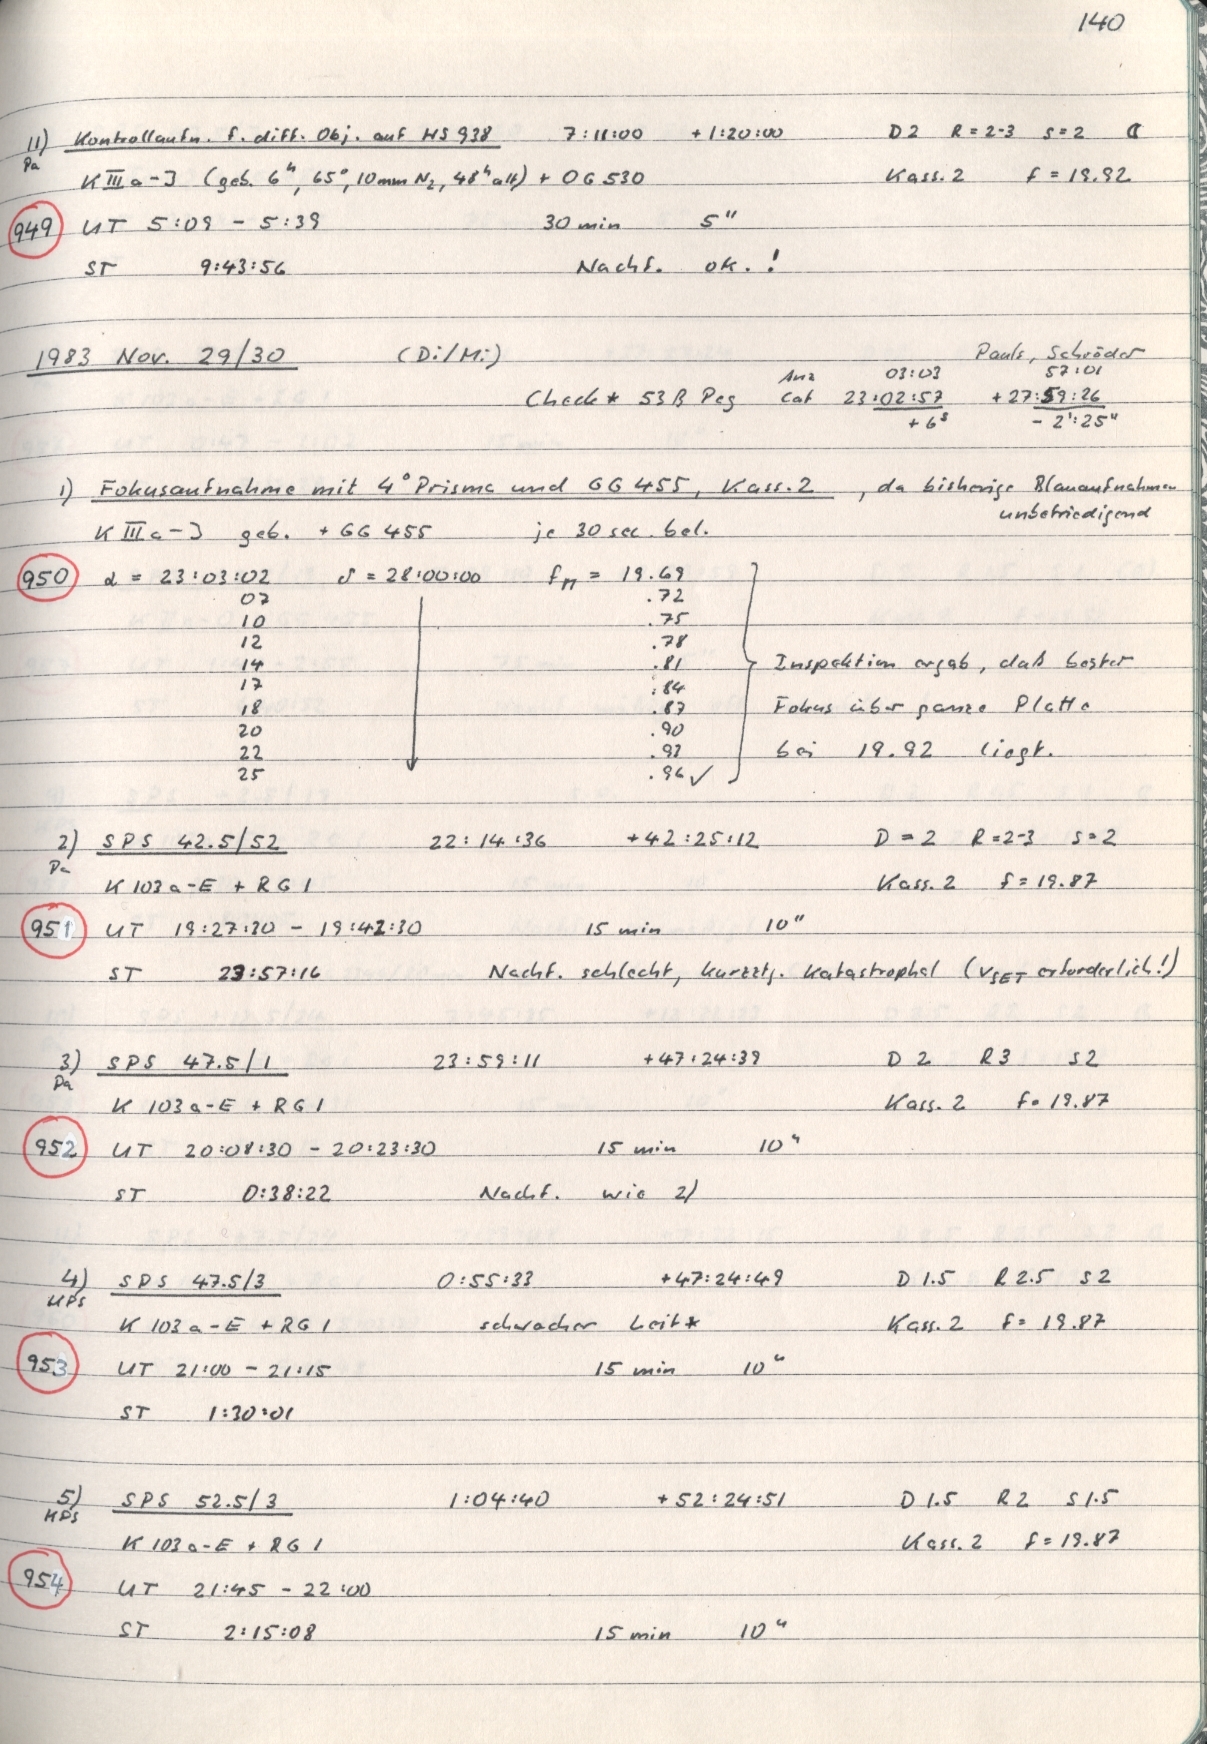 140
11) Kontrollaufn. f. diff. Obj. auf HS 938 7:11:00 +1:20:00 D 2 R = 2-3 S = 2
Pa K III a-J (geb. 6h, 65°, 10mm N2, 48h alt) + OG 530 Kass. 2 f = 19.92
949 UT 5:09 - 5:39 30 min 5"
ST 9:43:56 Nachf. ok. !
1983 Nov. 29/30 (Di/Mi) Pauls, Schröder
Anz 03:03 57:01
Check* 53 β Peg Cat 23:02:57 +27:59:26
+ 6s - 2':25"
1) Fokusaufnahme mit 4° Prisma und GG 455, Kass. 2 , da bisherige Blauaufnahmen
unbefriedigend
K III a-J geb. + GG 455 je 30 sec. bel.
950 α = 23:03:02 δ = 28:00:00 fM = 19.69
07 .72
10 .75
12 .78
14 .81 Inspektion ergab, daß bester
17 .84
18 .87 Fokus über ganze Platte
20 .90
22 .93 bei 19.92 liegt.
25 .96 ✓
2) SPS 42.5/52 22:14:36 +42:25:12 D = 2 R = 2-3 S = 2
Pa K 103 a-E + RG 1 Kass. 2 f = 19.87
951 UT 19:27:30 - 19:42:30 15 min 10"
ST 23:57:16 Nachf. schlecht, kurzztg. katastrophal (vSET erforderlich!)
3) SPS 47.5/1 23:59:11 +47:24:39 D 2 R 3 S 2
Pa K 103 a-E + RG 1 Kass. 2 f = 19.87
952 UT 20:08:30 - 20:23:30 15 min 10"
ST 0:38:22 Nachf. wie 2)
4) SPS 47.5/3 0:55:33 +47:24:49 D 1.5 R 2.5 S 2
MPS K 103 a-E + RG 1 schwacher Leit* Kass. 2 f = 19.87
953 UT 21:00 - 21:15 15 min 10"
ST 1:30:01
5) SPS 52.5/3 1:04:40 +52:24:51 D 1.5 R 2 S 1.5
MPS K 103 a-E + RG 1 Kass. 2 f = 19.87
954 UT 21:45 - 22:00
ST 2:15:08 15 min 10"